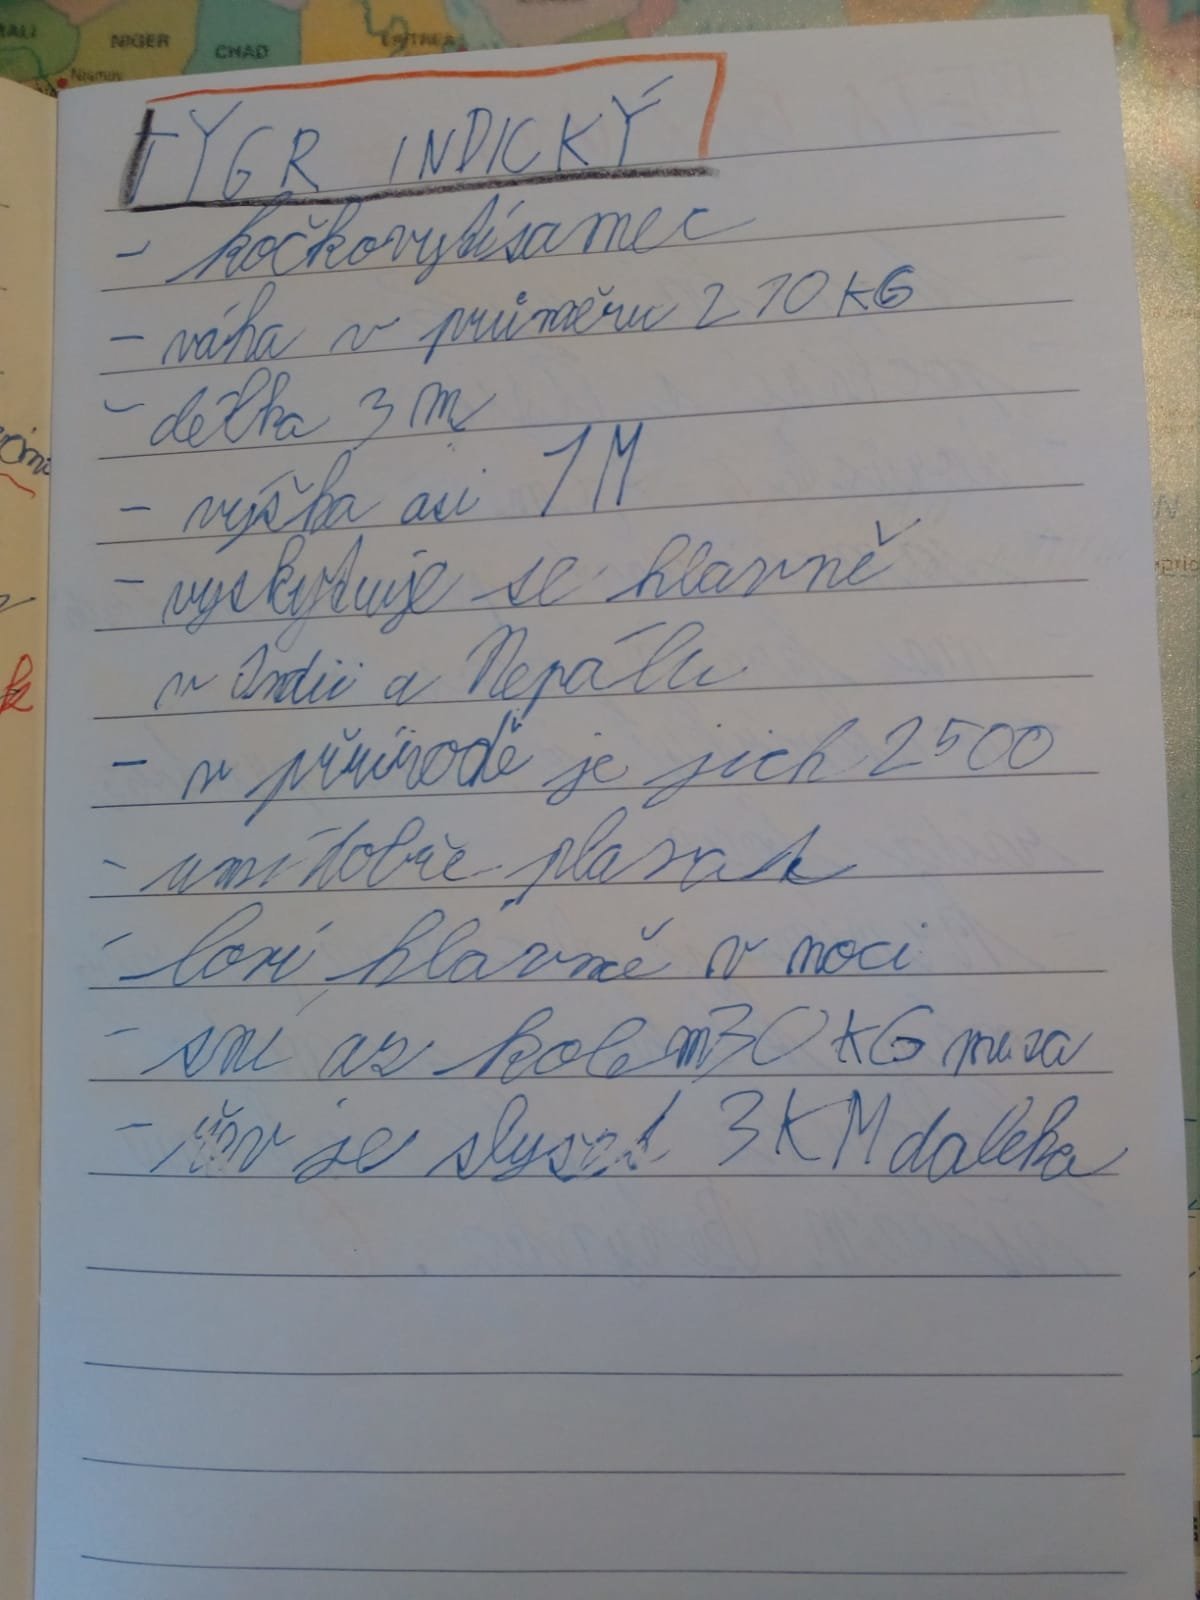 MALI
NIGER
CHAD
ERITREA
Niamey
TYGR INDICKÝ
- kočkovytísamec
- váha v průměru 210 KG
- délka 3 m
- výška asi 1M
- vyskytuje se hlavně
v Indii a Nepálu
- v přírodě je jich 2500
- umí dobře plavat
- loví hlávně v noci
- sní az kolem 30 KG masa
- řev je slyset 3 KM daleka